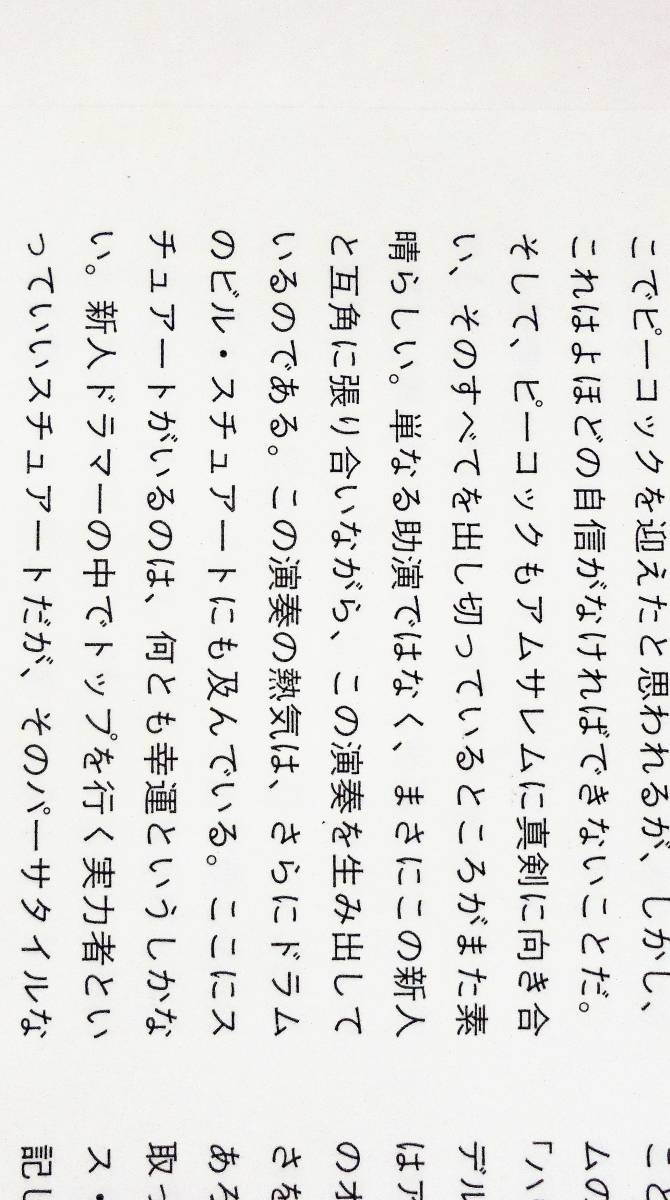 こでピーコックを迎えたと思われるが、しかし、
これはよほどの自信がなければできないことだ。
そして、ピーコックもアムサレムに真剣に向き合
い、そのすべてを出し切っているところがまた素
晴らしい。単なる助演ではなく、まさにこの新人
と互角に張り合いながら、この演奏を生み出して
いるのである。この演奏の熱気は、さらにドラム
のビル・スチュアートにも及んでいる。ここにス
チュアートがいるのは、何とも幸運というしかな
い。新人ドラマーの中でトップを行く実力者とい
っていいスチュアートだが、そのバーサタイルな
こと
ムの
「ハ
デル
はア
のオ
さを
ある
取っ
ス・
記し